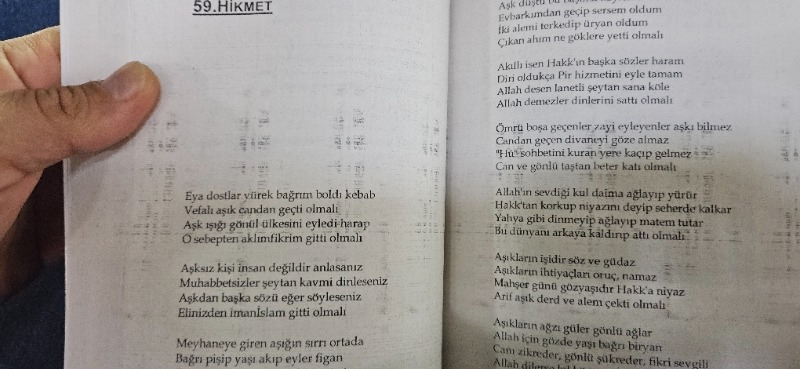 59.HİKMET
Eya dostlar yürek bağrım boldı kebab
Vefalı aşık candan geçti olmalı
Aşk ışığı gönül ülkesini eyledi harap
O sebepten aklımfikrim gitti olmalı
Aşksız kişi insan değildir anlasanız
Muhabbetsizler şeytan kavmi dinleseniz
Aşkdan başka sözü eğer söyleseniz
Elinizden imanİslam gitti olmalı
Meyhaneye giren aşığın sırrı ortada
Bağrı pişip yaşı akıp eyler figan
Aşk düştü
Evbarkımdan geçip sersem oldum
İki alemi terkedip üryan oldum
Çıkan ahım ne göklere yetti olmalı
Akıllı isen Hakk'ın başka sözler haram
Diri oldukça Pir hizmetini eyle tamam
Allah desen lanetli şeytan sana köle
Allah demezler dinlerini sattı olmalı
Ömrü boşa geçenler zayi eyleyenler aşkı bilmez
Candan geçen divaneyi göze almaz
"Hu" sohbetini kuran yere kaçıp gelmez
Can ve gönlü taştan beter katı olmalı
Allah'ın sevdiği kul daima ağlayıp yürür
Hakk'tan korkup niyazını deyip seherde kalkar
Yahya gibi dinmeyip ağlayıp matem tutar
Bu dünyanı arkaya kaldırıp attı olmalı
Aşıkların işidir söz ve güdaz
Aşıkların ihtiyaçları oruç, namaz
Mahşer günü gözyaşıdır Hakk'a niyaz
Arif aşık derd ve alem çekti olmalı
Aşıkların ağzı güler gönlü ağlar
Allah için gözde yaşı bağrı biryan
Canı zikreder, gönlü şükreder, fikri sevgili
Allah